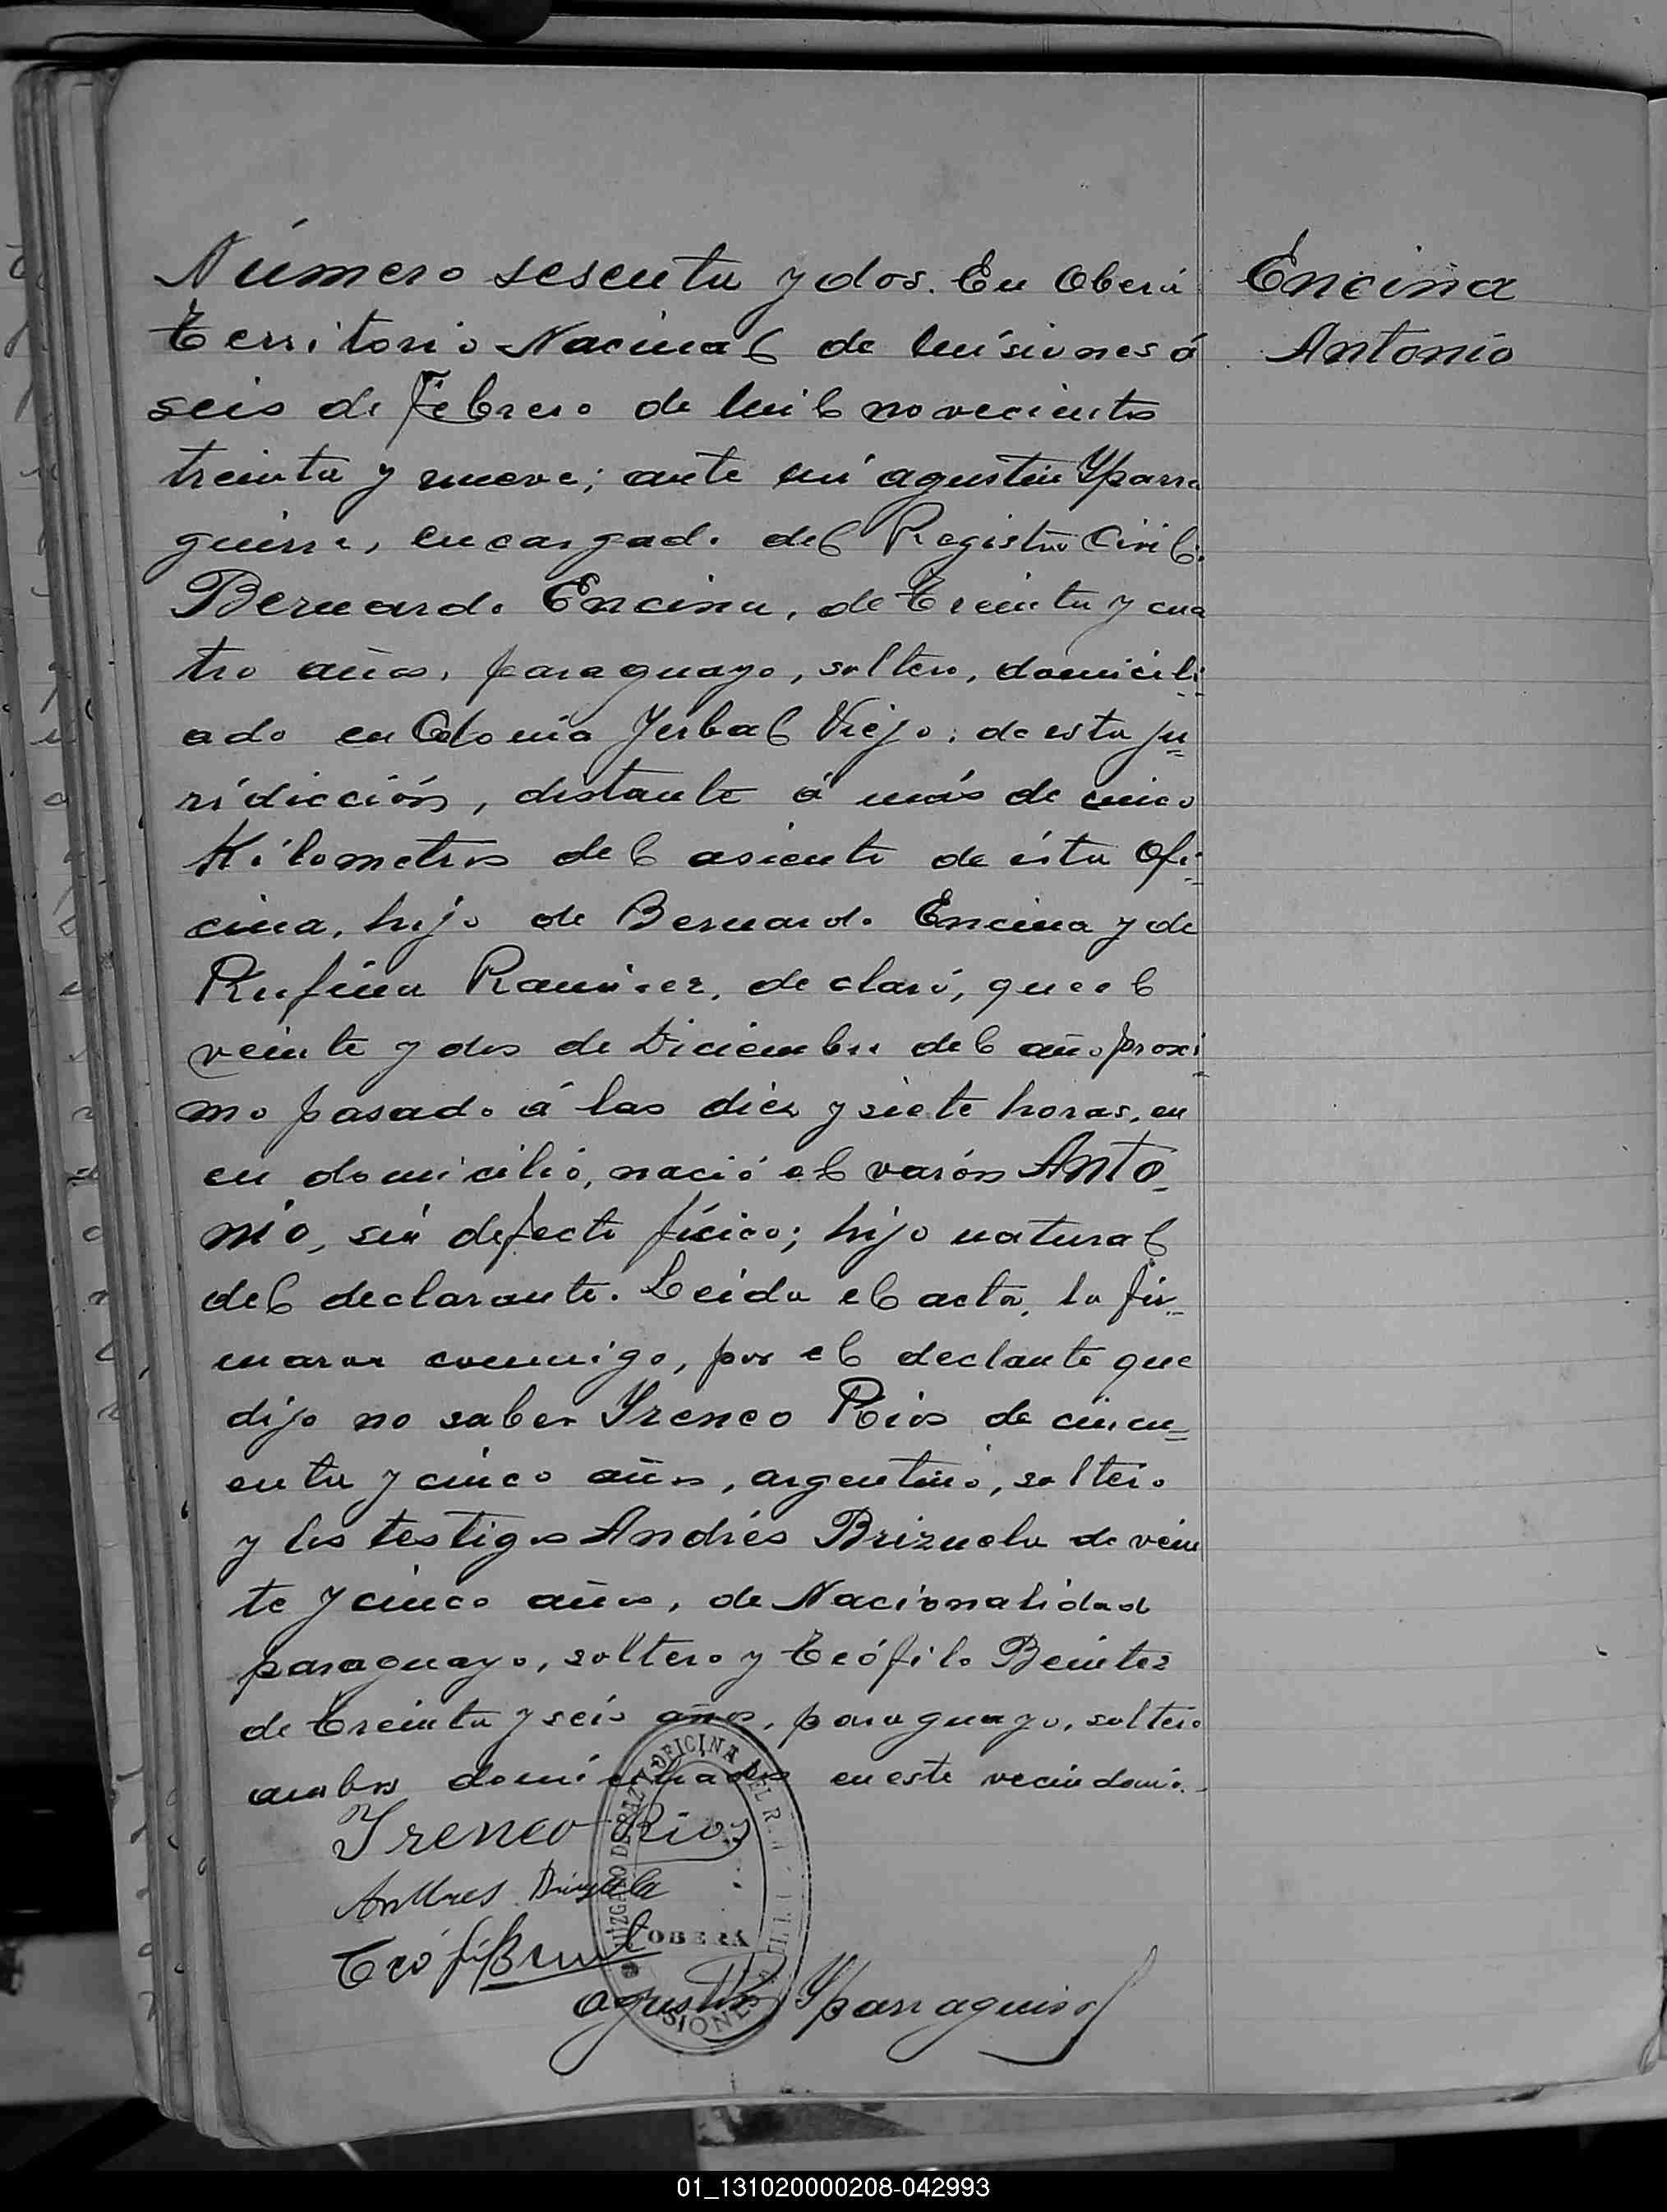 Número sesenta y dos. En Oberá
Territorio Nacional de Misiones á
seis de Febrero de mil novecientos
treinta y nueve; ante mí Agustín Yparra
guirre, encargado del Registro Civil.
Bernardo Encina, de treinta y cua
tro años, paraguayo, soltero, domicili
ado en Colonia Yerbal Viejo, de esta ju
ridicción, distante á más de cinco
Kilometros del asiento de ésta Ofi
cina, hijo de Bernardo Encina y de
Rufina Ramirez, declaró, que el
veinte y dos de Diciembre del año proxi
mo pasado á las diez y siete horas, en
en domicilio, nació el varón Anto
nio, sin defecto físico; hijo natural
del declarante. Leida el acta, la fir
maron conmigo, por el declante que
dijo no saber Yreneo Rios de cincu
enta y cinco años, argentino, soltero
y los testigos Andrés Brizuela de vein
te y cinco años, de Nacionalidad
paraguayo, soltero y Teófilo Benitez
de treinta y seis años, paraguayo, soltero
ambos domiciliados en este vecindario.
Yreneo Rios
Andres Brizuela
Teófi
Agustín Yparraguirre
Encina
Antonio
JUZGADO DE PAZ Y OFICINA DEL R.
OBERÁ
MISIONES
01_131020000208-042993